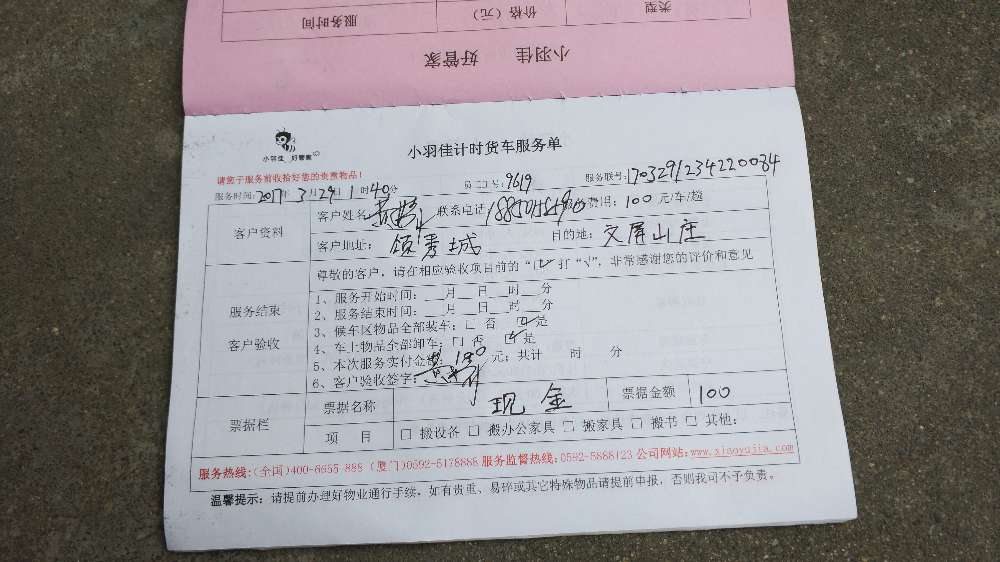 类型 价格（元） 服务时间
小羽佳 好管家
小羽佳 好管家
小羽佳计时货车服务单
请您于服务前收拾好您的贵重物品！
服务时间：2017年3月29日1时40分 员工号：9619 服务联号：1703291234220084
客户资料
客户姓名： 联系电话： 费用：100元/车/趟
客户地址：领秀城 目的地：文屏山庄
服务结束 客户验收
尊敬的客户，请在相应验收项目前的“□”打“√”，非常感谢您的评价和意见
1、服务开始时间：__月__日__时__分
2、服务结束时间：__月__日__时__分
3、候车区物品全部装车：□ 否 ☑是
4、车上物品全部卸车：□ 否 ☑是
5、本次服务实付金额：100元；共计 时 分
6、客户验收签字：
票据栏
票据名称 现金 票据金额 100
项 目 □ 搬设备 □ 搬办公家具 □ 搬家具 □ 搬书 □ 其他：
服务热线：（全国）400-6655 888（厦门）0592-5178888 服务监督热线：0592-5888123 公司网站：www.xiaoyujia.com
温馨提示：请提前办理好物业通行手续，如有贵重、易碎或其它特殊物品请提前申报，否则我司不予负责。